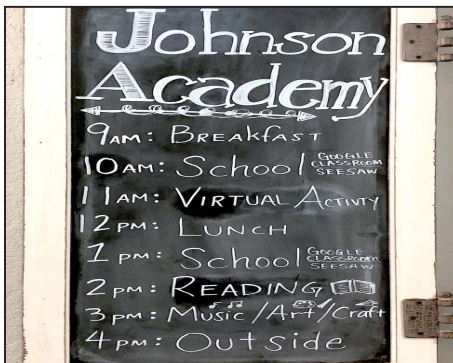 Johnson
Academy
9AM: BREAKFAST
10AM: School GOOGLE CLASSROOM SEESAW
11AM: VIRTUAL ACTIVTY
12PM: LUNCH
1PM: School GOOGLE CLASSROOM SEESAW
2PM: READING
3PM: Music/Art/Craft
4PM: Outside